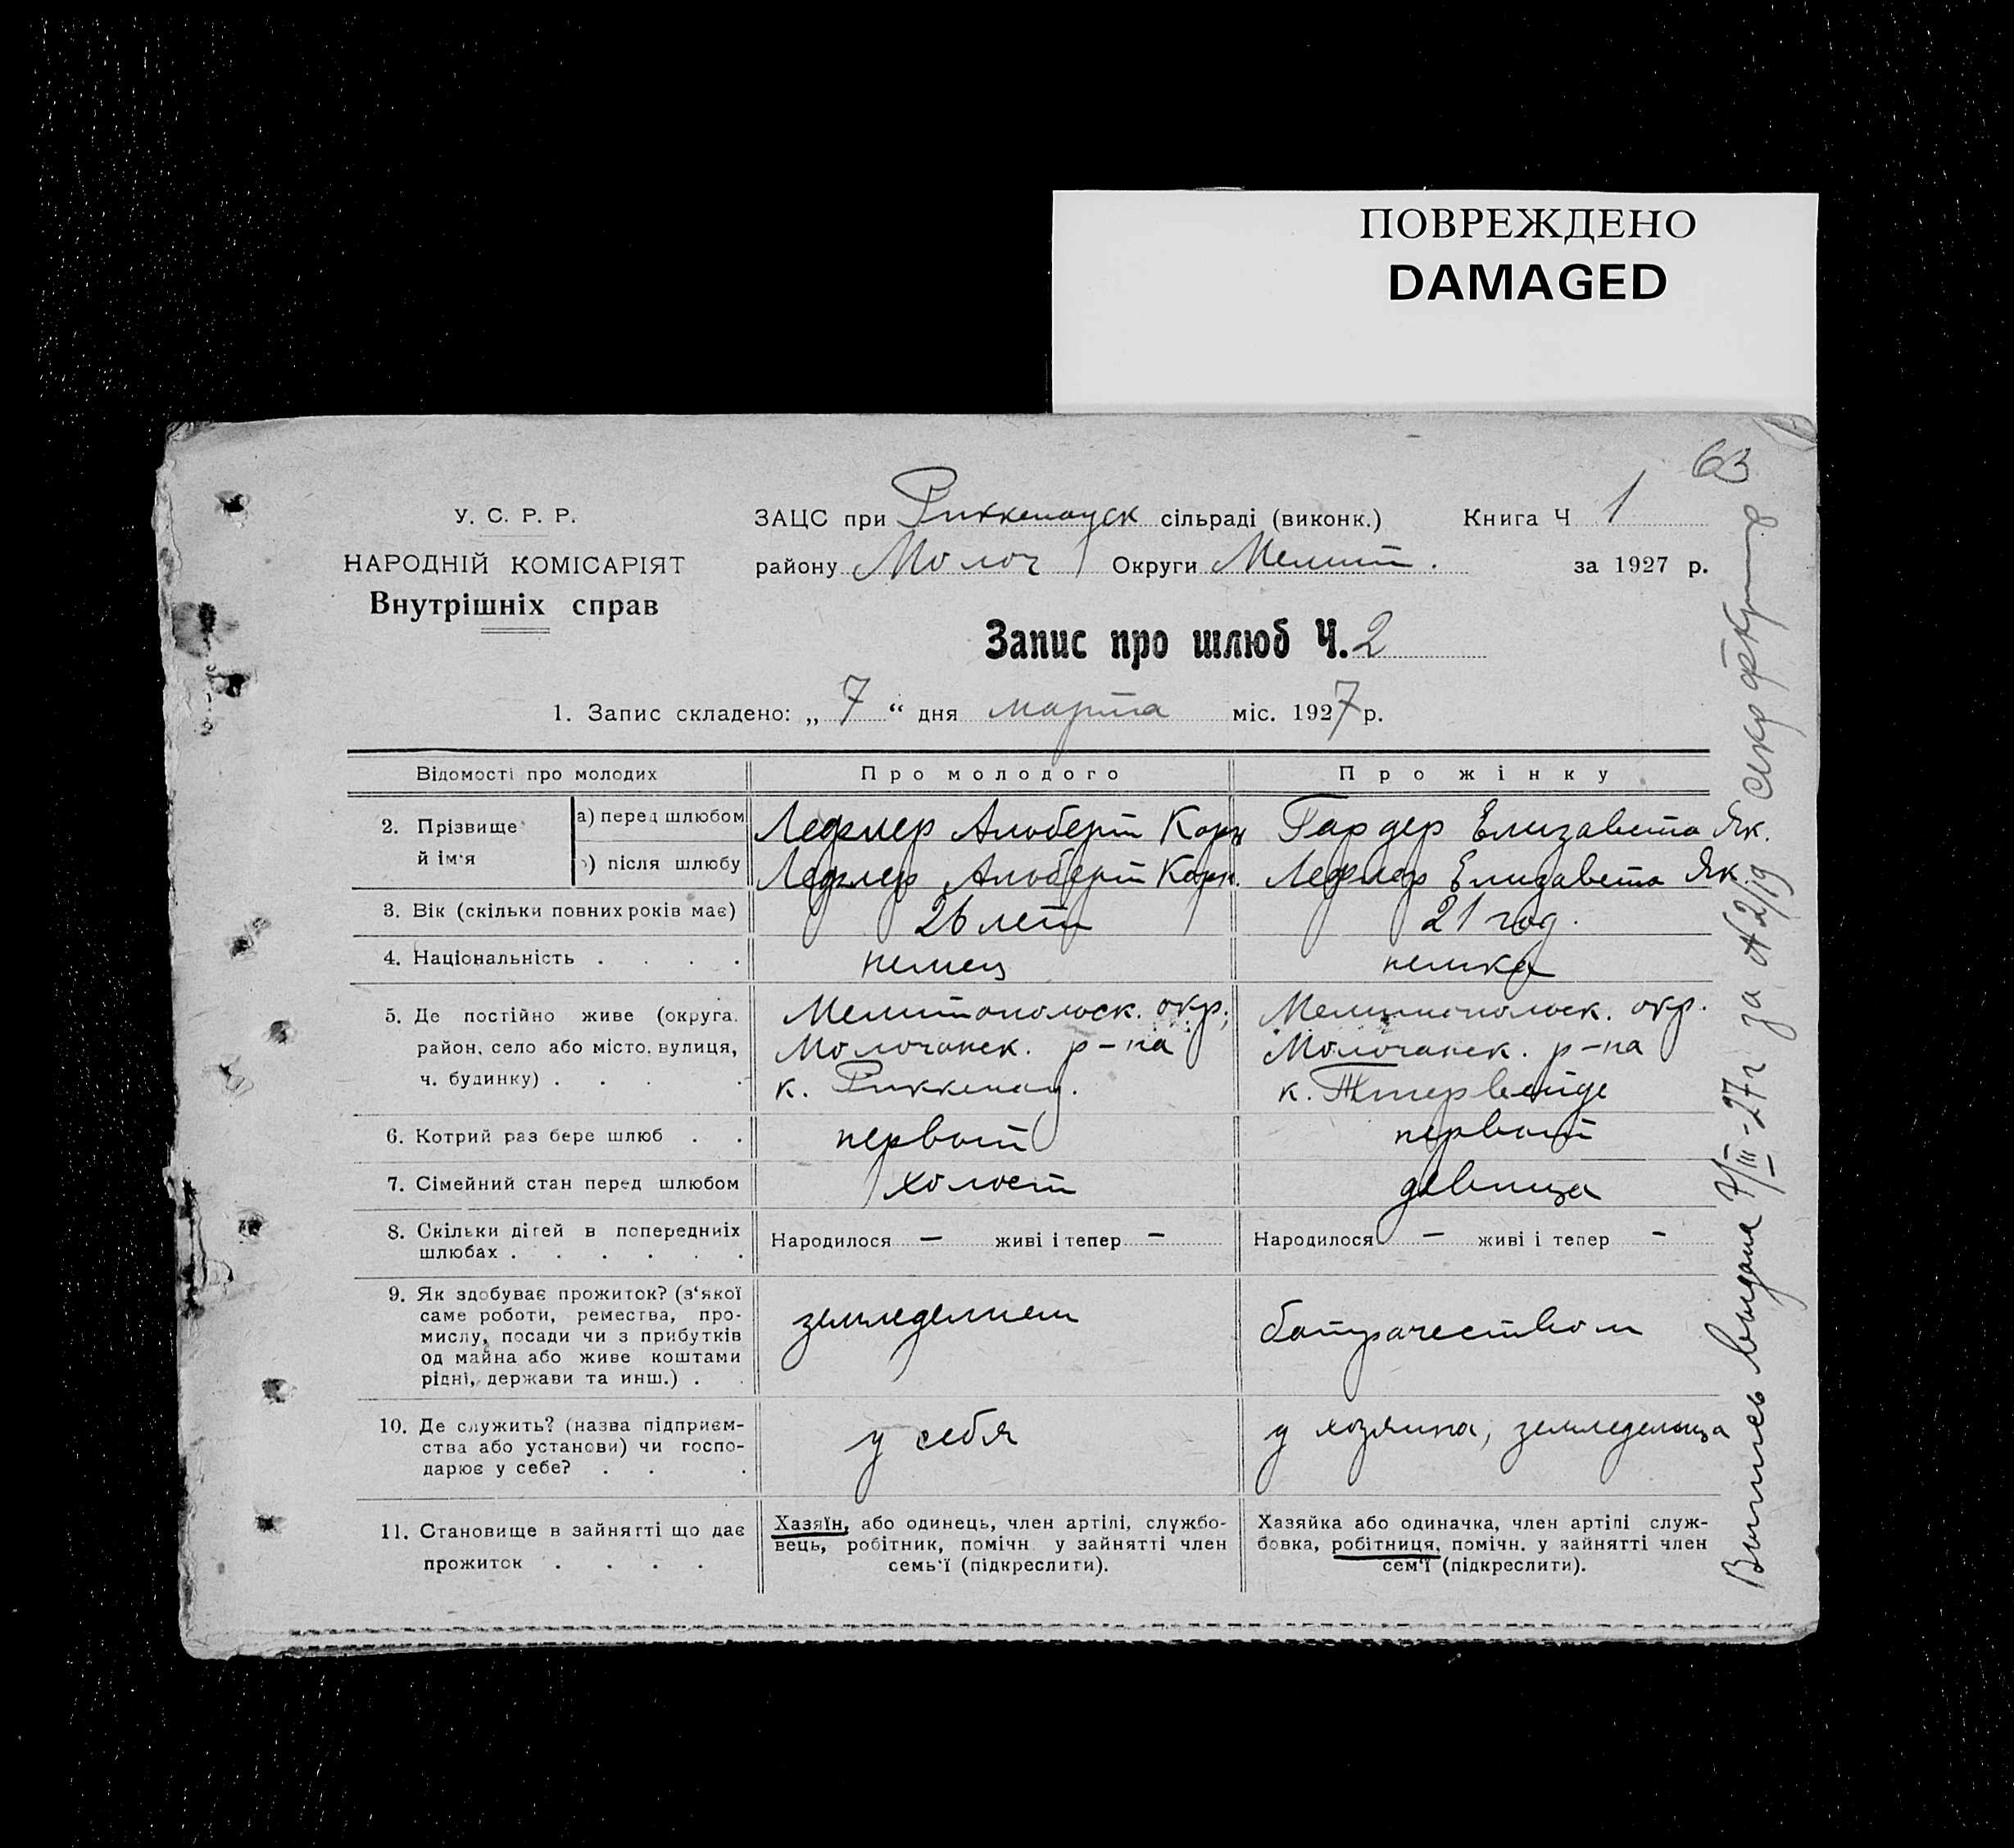 ПОВРЕЖДЕНО
DAMAGED
63
У. С. Р. Р.
НАРОДНІЙ КОМІСАРІЯТ
Внутрішніх справ
ЗАЦС при Риккенауск сільраді (виконк.) Книга Ч 1
району Молоч Округи Мелит. за 1927 р.
Запис про шлюб Ч. 2
1. Запис складено: „ 7 “ дня марта міс. 1927 р.
Відомості про молодих Про молодого Про жінку
2. Прізвище й ім‘я
а) перед шлюбом Лефлер Альберт Корн Гардер Елизавета Як.
б) після шлюбу Лефлер Альберт Корн. Лефлер Елизавета Як.
3. Вік (скільки повних років має) 26 лет 21 год.
4. Національність . . . . немец немка
5. Де постійно живе (округа, район, село або місто, вулиця, ч. будинку) . . . .
Мелитопольск. окр.
Молочанск. р-на
к. Риккенау.
Мелитопольск. окр.
Молочанск. р-на
к. Тигервейде
6. Котрий раз бере шлюб . . первый первый
7. Сімейний стан перед шлюбом холост девица
8. Скільки дітей в попередніх шлюбах . . . . . .
Народилося — живі і тепер — Народилося — живі і тепер —
9. Як здобуває прожиток? (з‘якої
саме роботи, ремества, про-
мислу, посади чи з прибутків
од майна або живе коштами
рідні, держави та инш.) . .
земледелием батрачеством
10. Де служить? (назва підприєм-
ства або установи) чи госпо-
дарює у себе? . . .
у себя у хозяина, земледельца
11. Становище в зайнятті що дає
прожиток . . . .
Хазяїн, або одинець, член артілі, службо-
вець, робітник, помічн. у зайнятті член
семь‘ї (підкреслити).
Хазяйка або одиначка, член артілі служ-
бовка, робітниця, помічн. у зайнятті член
сем‘ї (підкреслити).
Выпись выдана 7/III-27г за № 2/19 секр